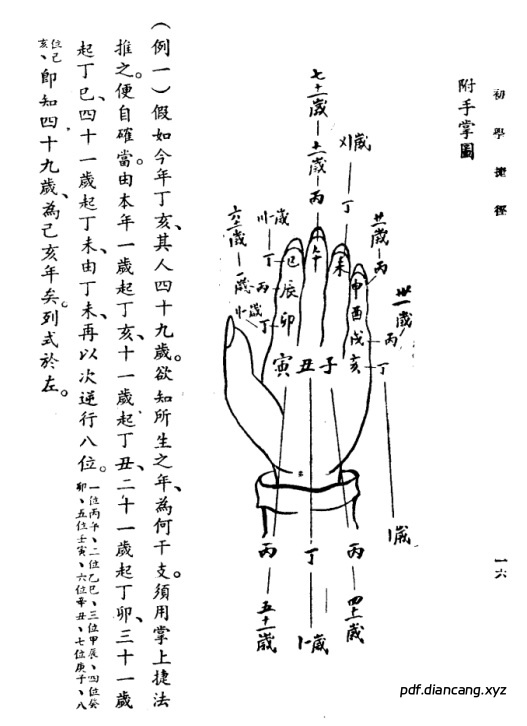 初學捷徑
一六
附手掌圖
七十一歲
十一歲
丙
歲
丁
廿一歲
丙
卅一歲
丙
丁
歲
六十一歲
歲
丁
歲
丙
歲
丁
巳
午
未
申
辰
酉
卯
戌
寅
丑
子
亥
丙
丁
丙
五十一歲
歲
四十一歲
（例一）假如今年丁亥、其人四十九歲。欲知所生之年、為何干支。須用掌上捷法
推之。便自確當。由本年一歲起丁亥、十一歲起丁丑、二十一歲起丁卯、三十一歲
起丁巳、四十一歲起丁未、由丁未、再以次逆行八位。一位丙午、二位乙巳、三位甲辰、四位癸卯、五位壬寅、六位辛丑、七位庚子、八
位己亥、即知四十九歲、為己亥年矣。列式於左。
pdf.diancang.xyz